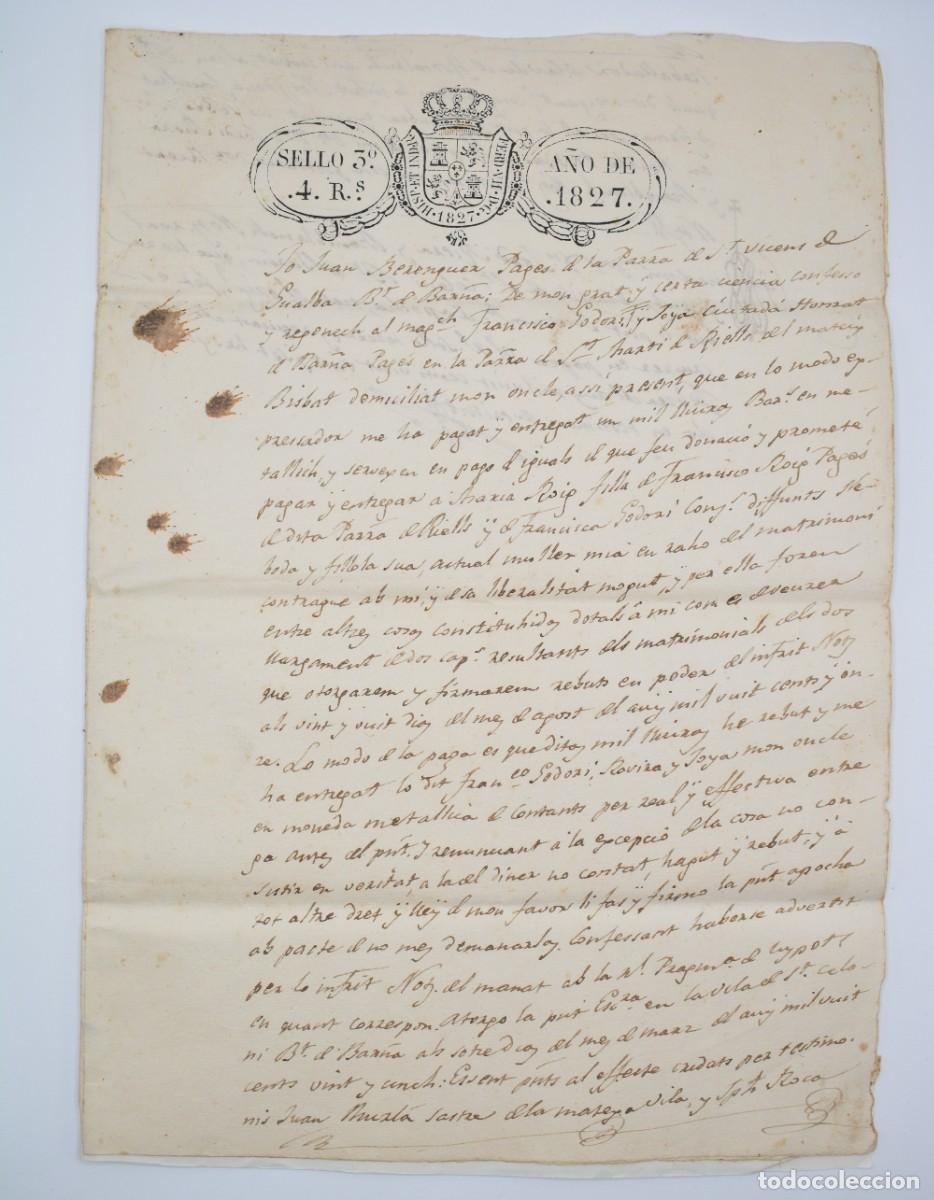 SELLO 3º
.4. R.S
HISP·ET IND·R
·1827·
FERD·VII·D·G·
AÑO DE
.1827.
Jo Juan Berenguer Pages de la Parrã de St. Vicens de
Gualba Bt. de Barña: De mon grat, y certa ciencia confesso
y regonech al magch Francisco Godori, y Joya Ciutadá Honrat
de Barña Pages en la Parrã de St. Marti de Riells del mateix
Bisbat domiciliat mon oncle, assi present, que en lo modo ex-
pressador me ha pagat y entregat un mil lliuras Bars. en me-
tallich, y serveyen en pago de iguals el que feu donació y prometé
pagar y entregar á Maria Roig filla de Francisco Roig Pagés
de dita Parrã de Riells y de Francisca Godori Conjs. diffunts Ne-
boda y fillola sua, actual muller mia en raho del matrimoni
contragué ab mi, y de sa liberalitat mogut, y per ella foren
entre altres cosas constituhidas dotals á mi com es de veurer
llargament de dos caps. resultants dels matrimonials dels dos
que otorgarem y firmarem rebuts en poder del infrit Noty
als vint y vuit dias del mes de agost del any mil vuit cents y on-
ze. Lo modo de la paga es que ditas mil lliuras he rebut y me
ha entregat lo dit Franco Godori, Rovira y Joya mon oncle
en moneda metallica de Contants per real y effectiva entre
ga antes del pñt. Y renunciant á la excepció de la cosa no con-
sistir en veritat, a la del diner no contat, hagut y rebut, y á
tot altre dret y lley de mon favor li fas y firmo la pñt apocha
ab pacte de no mes demanarlas. Confessant haberse advertit
per lo infrit Noty. del manat ab la Rl. Pragma. de Hypots
en quant correspon. Atorgo la pñt Escra en la Vila de St. Celo-
ni Bt. de Barña als setse dias del mes de mars del any mil vuit
cents vint y cinch: Essent pñts al effecte cridats per testimo-
nis Juan sastre de la mateixa Vila, y Jph Roca
todocoleccion